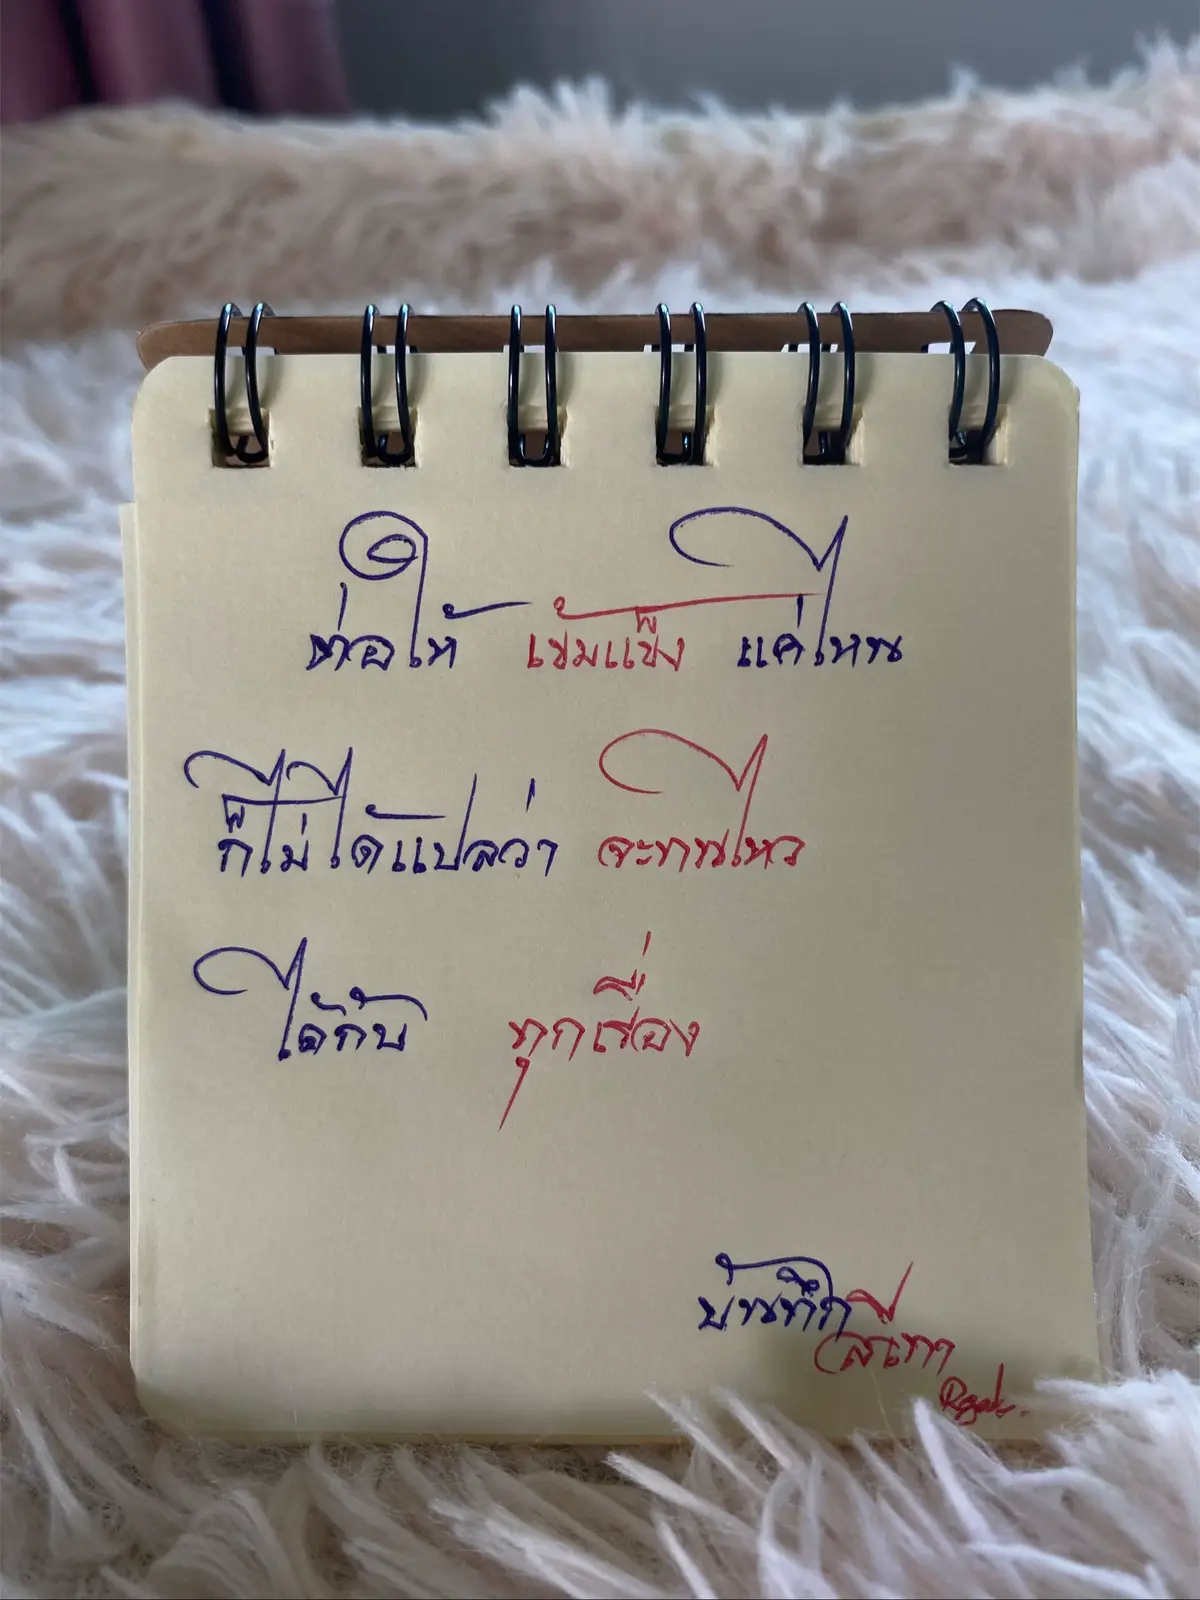 ต่อให้ เข้มแข็ง แค่ไหน
ก็ไม่ได้แปลว่า จะทนไหว
ได้กับ ทุกเรื่อง
บันทึก
สีเทา